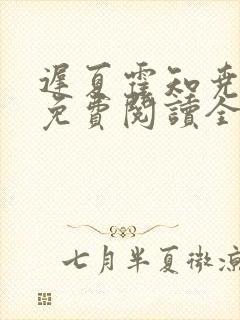 遲夏霍知堯
免費閱讀全
七月半夏微涼